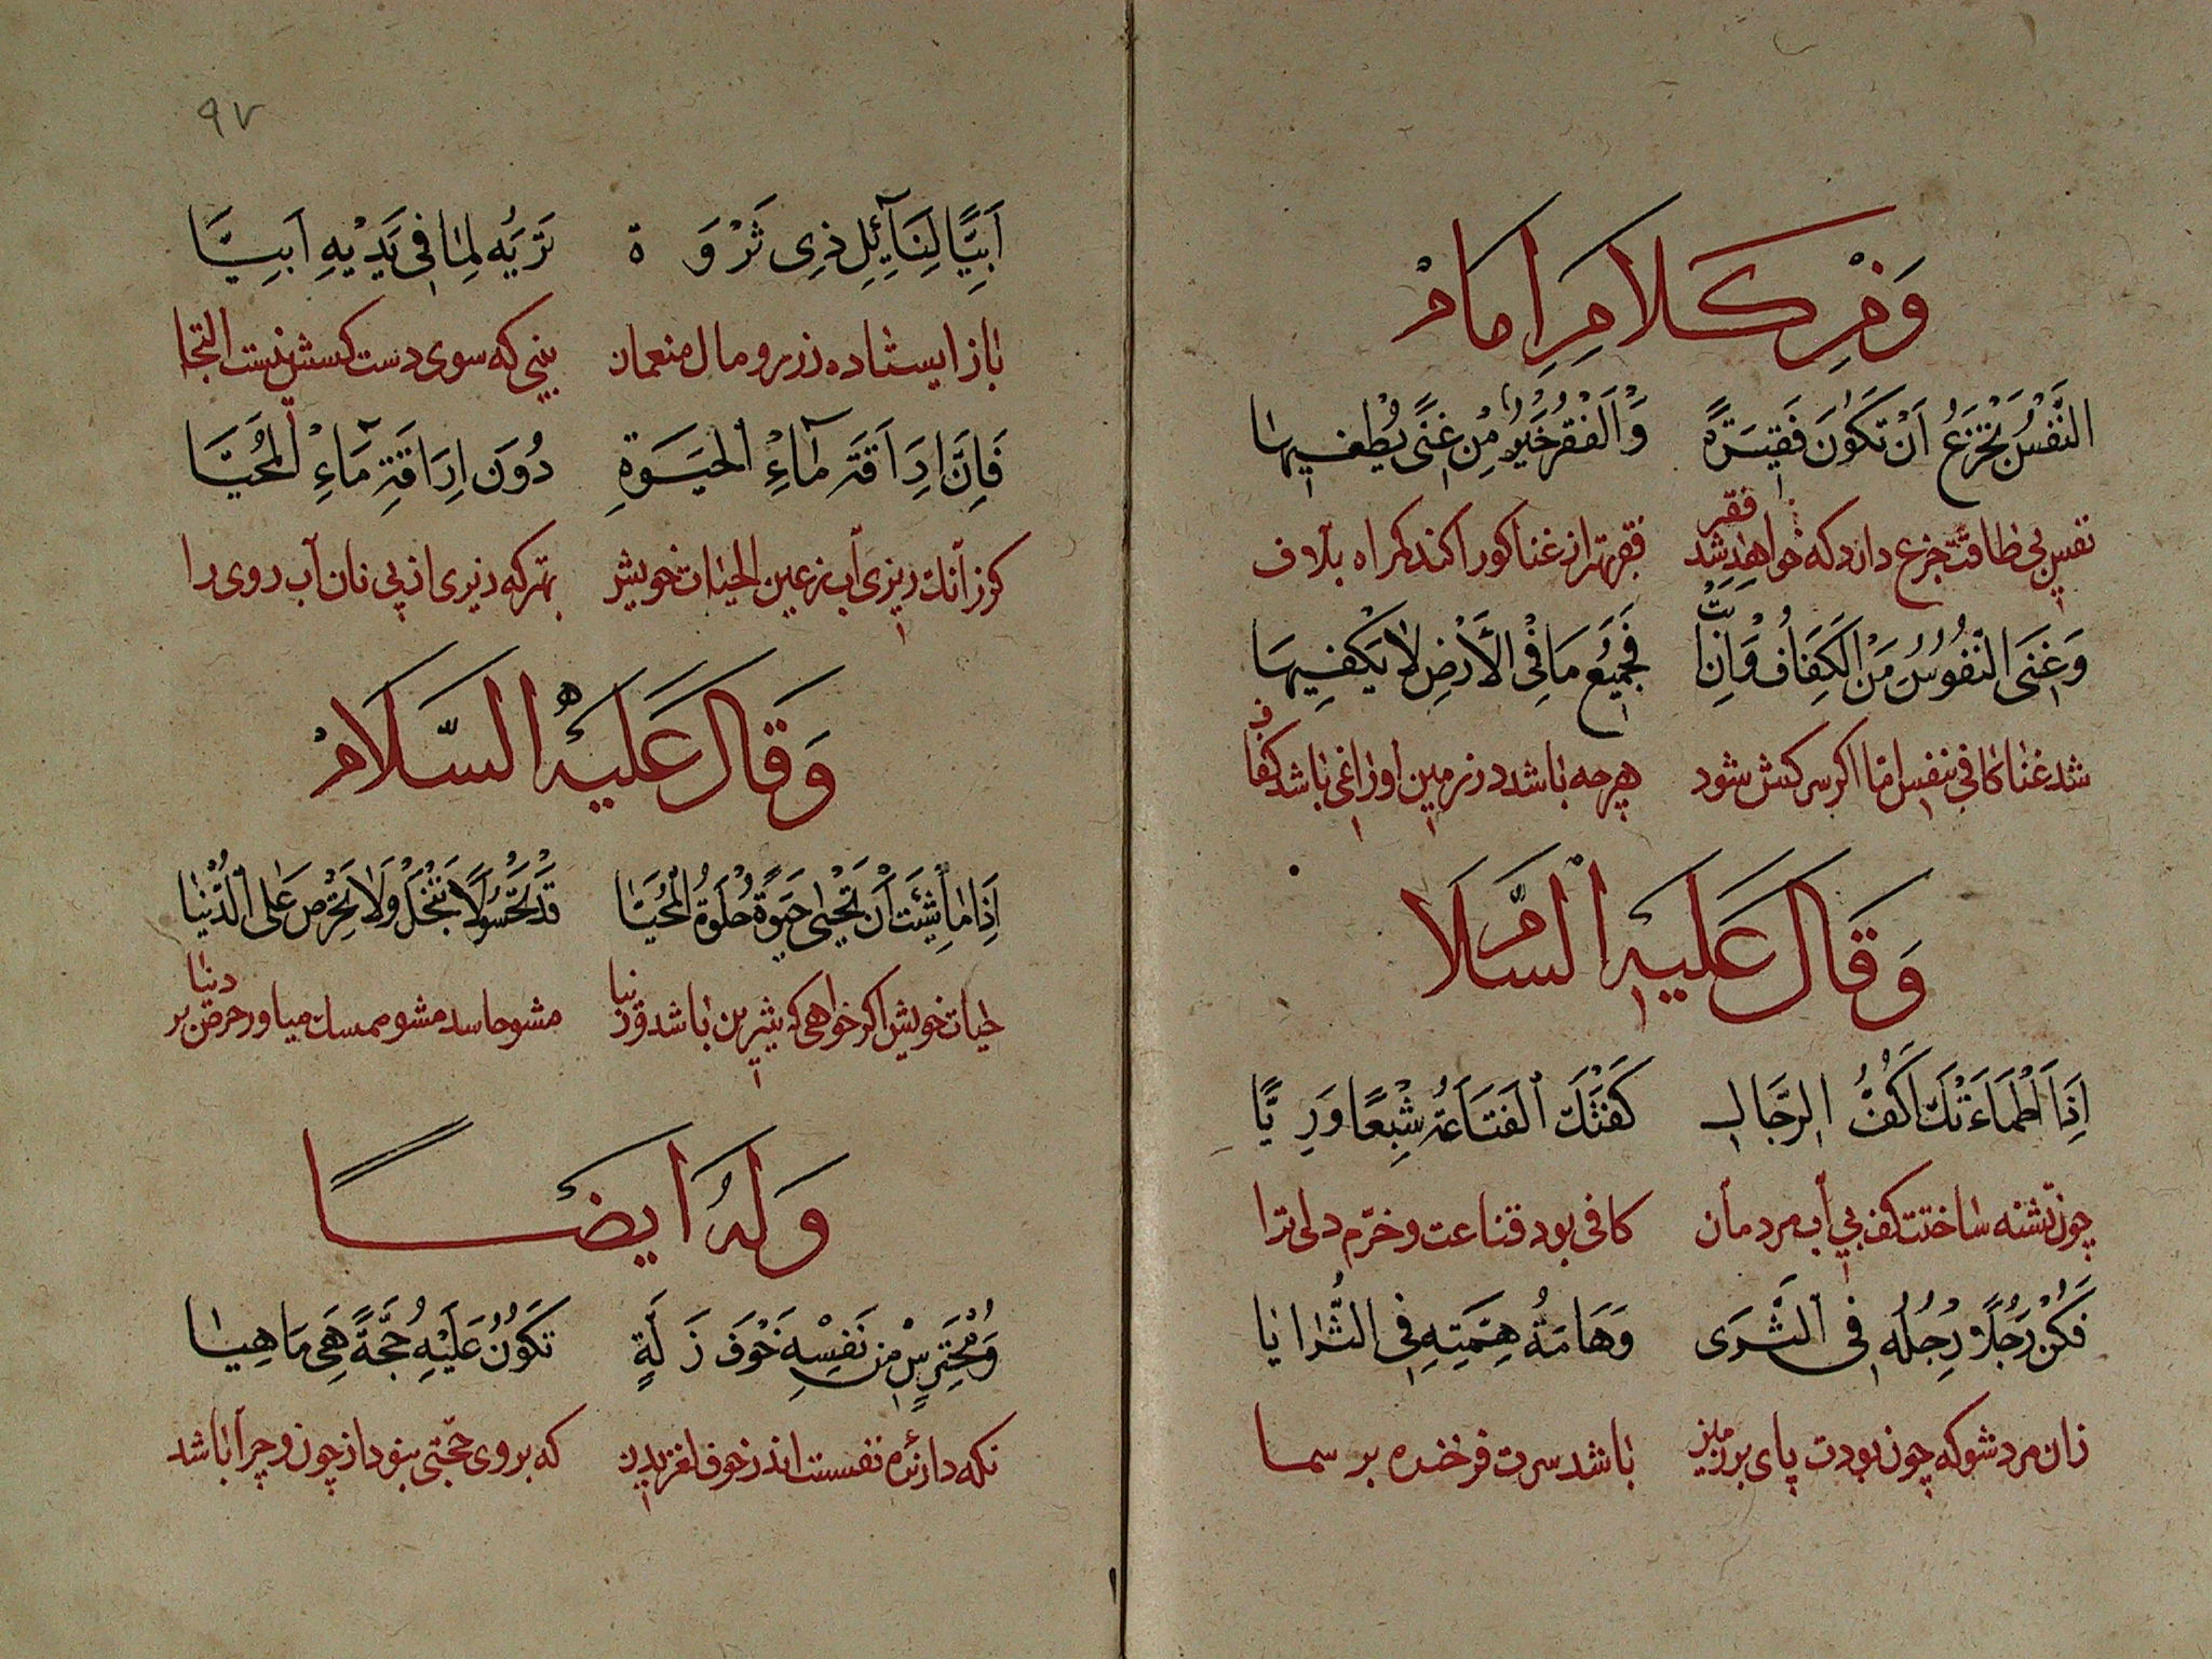 وَمِنْ كَلَامِ اِمَامْ
النَّفْسُ تَجْزَعُ اَنْ تَكُوْنَ فَقِيْرَةً وَالْفَقْرُ خَيْرٌ مِنْ غِنًى يُطْغِيهَا
نفس بی طاقت جزع دارد که خواهد شد فقیر فقر بهتر از غنا کورا کند کمراه بلاف
وَغِنَى النُّفُوْسِ مَنَ الْكَفَافُ وَاِنْ اَبَتْ فَجَمِيْعُ مَا فِى الْاَرْضِ لَا يَكْفِيهَا
شد غنا کافی نفس اما اکر سرکش شود هرچه باشد در زمین او را غی باشد کفاف
وَقَالَ عَلَيهِ السَّلَامْ
اِذَا اَظْمَاءَتْكَ اَكُفُّ الرَّجَالِ كَفَتْكَ الْقَنَاعَةُ شِبْعًا وَرِيًّا
چون تشنه ساختت کف بی آب مردمان کافی بود قناعت و خرّم دلی ترا
فَكُنْ رَجُلًا رِجْلُهُ فِى الثَّرَى وَهَامَةُ هِمَّتِهِ فِى الثُّرَايَا
زان مرد شو که چون بودت پای بر زمین باشد سرت فرخنده بر سما
٩٧
اَبِيًّا لِنَآئِلِ ذِى ثَرْوَة تَرَيهُ لِمَا فِى يَدَيْهِ اَبِيَّا
باز ایستاده زر و مال منعمان بینی که سوی دست کسش نیست التجا
فَاِنَّ اِرَاقَةَ مَآءِ الْحَيَوةِ دُوْنَ اِرَاقَةِ مَآءِ الْمُحَيَّا
کوزآنک ریزی آب ز عین الحیات خویش بهتر که ریزی از پی نان آب روی را
وَقَالَ عَلَيْهِ السَّلَامْ
اِذَا مَا شِئْتَ اَنْ تَحْيَى حَيَوةً حُلْوَةُ الْمُحَيَّا قَدْ تَحْسُوْلَا تَبْخَلْ وَلَا تَحْرِصْ عَلَى الدُّنْيَا
حیات خویش اکر خواهی که شیرین باشد و زیبا مشو حاسد مشو ممسک میاور حرص بر دنیا
وَلَهُ اَيضًا
وَمُحْتَرِسٍ مِنْ نَفْسِهِ خَوْفَ زَلَّةٍ تَكُوْنُ عَلَيْهِ حُجَّةً هِىَ مَاهِيَا
نکه دارنده نفست اندر خوف لغزیدن که بر وی حجتی بنود از چون و چرا باشد